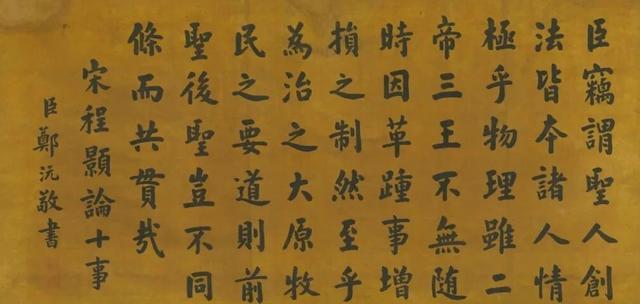 臣竊謂聖人創
法皆本諸人情
極乎物理雖二
帝三王不無随
時因革踵事增
損之制然至乎
為治之大原牧
民之要道則前
聖後聖豈不同
條而共貫哉
宋程顥論十事
臣鄭沅敬書